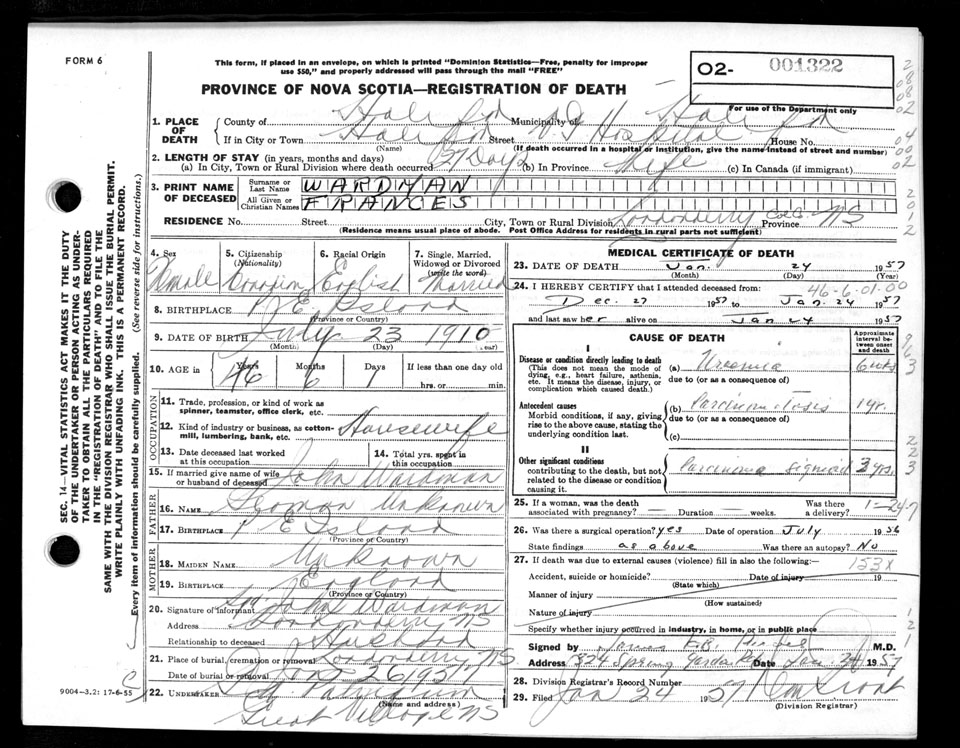 FORM 6
This form, if placed in an envelope, on which is printed "Dominion Statistics—Free, penalty for improper
use $50," and properly addressed will pass through the mail "FREE"
O2- 001322
For use of the Department only
PROVINCE OF NOVA SCOTIA—REGISTRATION OF DEATH
1. PLACE OF DEATH
County of Halifax Municipality of Halifax
If in City or Town Halifax Street V G Hospital House No.
(Name) (If death occurred in a hospital or institution, give the name instead of street and number)
2. LENGTH OF STAY (in years, months and days)
(a) In City, Town or Rural Division where death occurred 27 Days (b) In Province Life (c) In Canada (if immigrant)
3. PRINT NAME OF DECEASED
Surname or Last Name WARDMAN
All Given or Christian Names FRANCES
RESIDENCE No. Street City, Town or Rural Division Londonderry Col. Province NS
(Residence means usual place of abode. Post Office Address for residents in rural parts not sufficient)
4. Sex Female
5. Citizenship (Nationality) Canadian
6. Racial Origin English
7. Single, Married, Widowed or Divorced (write the word) Married
8. BIRTHPLACE P E Island
(Province or Country)
9. DATE OF BIRTH July 23 1910
(Month) (Day) (Year)
10. AGE in Years 46 Months 6 Days 1 If less than one day old
hrs. or min.
OCCUPATION
11. Trade, profession, or kind of work as
spinner, teamster, office clerk, etc.
12. Kind of industry or business, as cotton-
mill, lumbering, bank, etc. Housewife
13. Date deceased last worked at this occupation
14. Total yrs. spent in this occupation
15. If married give name of wife or husband of deceased John Wardman
FATHER
16. NAME Thomas Unknown
17. BIRTHPLACE P E Island
(Province or Country)
MOTHER
18. MAIDEN NAME Unknown
19. BIRTHPLACE England
(Province or Country)
20. Signature of informant John Wardman
Address Londonderry NS
Relationship to deceased Husband
21. Place of burial, cremation or removal Londonderry NS
Date of burial or removal Jan 26 1957
22. UNDERTAKER
(Name and address)
Great Village NS
9004-3.2: 17-6-55
MEDICAL CERTIFICATE OF DEATH
23. DATE OF DEATH Jan. 24 1957
(Month) (Day) (Year)
24. I HEREBY CERTIFY that I attended deceased from: 46-6-01-00
Dec. 27 1957 to Jan. 24 1957
and last saw her alive on Jan 24 1957
CAUSE OF DEATH
Approximate interval between onset and death
I
Disease or condition directly leading to death
(This does not mean the mode of dying, e.g., heart failure, asthenia, etc. It means the disease, injury, or complication which caused death.)
(a) Uraemia 6 wks
due to (or as a consequence of)
Antecedent causes
Morbid conditions, if any, giving rise to the above cause, stating the underlying condition last.
(b) Carcinomatosis 1 yr.
due to (or as a consequence of)
(c)
II
Other significant conditions
contributing to the death, but not related to the disease or condition causing it.
Carcinoma Sigmoid 3 yrs.
25. If a woman, was the death associated with pregnancy? — Duration — weeks. Was there a delivery?
26. Was there a surgical operation? yes Date of operation July 1956
State findings as above Was there an autopsy? No
27. If death was due to external causes (violence) fill in also the following:— 153X
Accident, suicide or homicide? Date of injury 19
(State which)
Manner of injury
(How sustained)
Nature of injury
Specify whether injury occurred in industry, in home, or in public place
Signed by M.D.
Address Spring Garden Rd Date Jan 24 1957
28. Division Registrar's Record Number
29. Filed Jan 24 1957
(Division Registrar)
SEC. 14—VITAL STATISTICS ACT MAKES IT THE DUTY
OF THE UNDERTAKER OR PERSON ACTING AS UNDER-
TAKER TO OBTAIN ALL THE PARTICULARS REQUIRED
IN THE "REGISTRATION OF DEATH" AND TO FILE THE
SAME WITH THE DIVISION REGISTRAR WHO SHALL ISSUE THE BURIAL PERMIT.
WRITE PLAINLY WITH UNFADING INK. THIS IS A PERMANENT RECORD.
Every item of information should be carefully supplied. (See reverse side for instructions.)